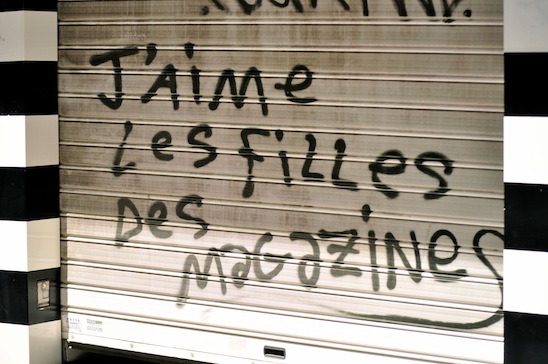 J'AiME
Les filles
Des
MaGaziNes